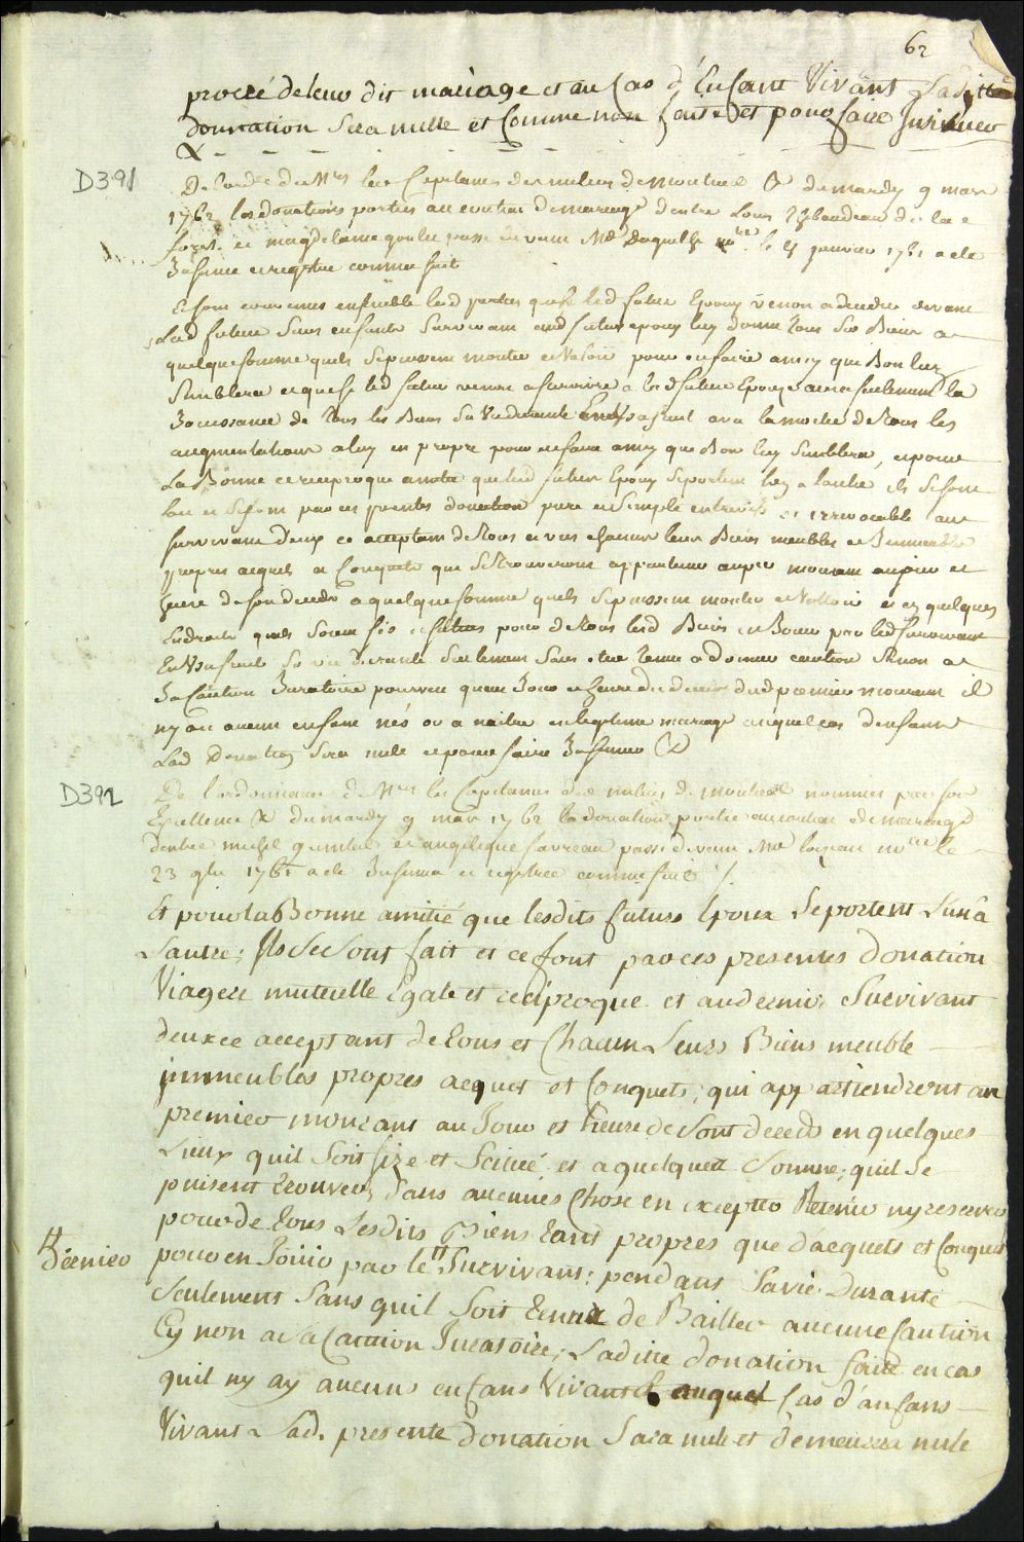 62
procréé de leur dit mariage et au Cas d'Enfant Vivant Laditte
donnation Sera nulle et Comme non faite et pour faire Insinuer
&
D391
De l'ordre de Mrs les Capitaines des milices de Montreal & du mardy 9 mars
1762 les donations portées au contrat de mariage d'entre Louis Thibaudeau dit la
et magdelaine passé devant Me le janvier 1761 a ete
Insinué et registré comme suit
Et sont convenus ensemble lesd parties que si led futur Epoux venoit a deceder devant
Lad future Sans enfants Survivant aud futur epoux luy donne tous Ses Biens a
quelque somme quils Se puissent monter et Valoir pour en faire ainsy que Bon luy
Semblera et que si led futur venoit a survivre a lad future Epouze aura seulement la
Jouissance de tous les Biens Sa Vie durante avec la moitié de tous les
augmentations a luy en propre pour en faire ainsy que Bon luy Semblera, et pour
La Bonne et reciproque amitié que led futurs Epoux Se portent luy a lautre ils Se sont
fait et Se font par ces presentes donation pure et Simple entrevifs et irrevocable au
survivant deux ce acceptant de tous et uns chacuns leurs Biens meubles et Immeubles
propres acquets et Conquets que Se trouveront appartenir au per mourant au jour et
heure de son deceds a quelque somme quils Se puissent monter et Valloir et en quelques
Endroits quils Soient sis et situés pour de tous lesd Biens en Jouir par led survivant
En Usufruit Sa vie durante Seulement Sans etre tenu a donner caution Sinon a
Sa Caution Juratoire pourveu quau Jour et heure du deceds dud premier mourant il
ny ait aucun enfant nés ou a naitre en legitime mariage auquel cas denfant
Lad Donation Sera nulle et pour faire Insinuer &
D392
De l'ordonnance de Mrs les Capitaines des milices de montreal nommés par Son
Excellence & du mardy 9 mars 1762 la donation portée au contrat de mariage
d'entre michel et angelique favreau passé devant Me loiseau nore le
23 9bre 1761 a ete Insinuée et registrée comme suit /.
Et pour la Bonne amitié que lesdits futurs Epoux Se portent L'un à
L'autre; Ils Se Sont fait et ce font par ces presentes donation
Viagere mutuelle Egale et reciproque et au dernier Survivant
deux ce acceptant de tous et Chacun Leurs Biens meuble
immeubles propres acquet et Conquets; qui appartiendront au
premier mourant au Jour et heure de Sont deceds en quelques
Lieux quil Soit size et Scitué et a quelquett Somme; quil Se
puisent trouver, Sans aucunes Chose en excepter Retenir ny reserver
pour de tous Lesdits Biens tant propres que d'acquets et Conquet
pour en Joüir par le # Survivant; pendant Sa vie Durante
# dernier
Seulement Sans quil Soit tenu de Bailler aucune Caution
Cy non a la Caution Juratoire; Laditte donation faite en cas
quil ny ay aucuns enfans Vivant auquel Cas d'anfans
Vivant Lad. presente donation Sara nule et demeurera nule